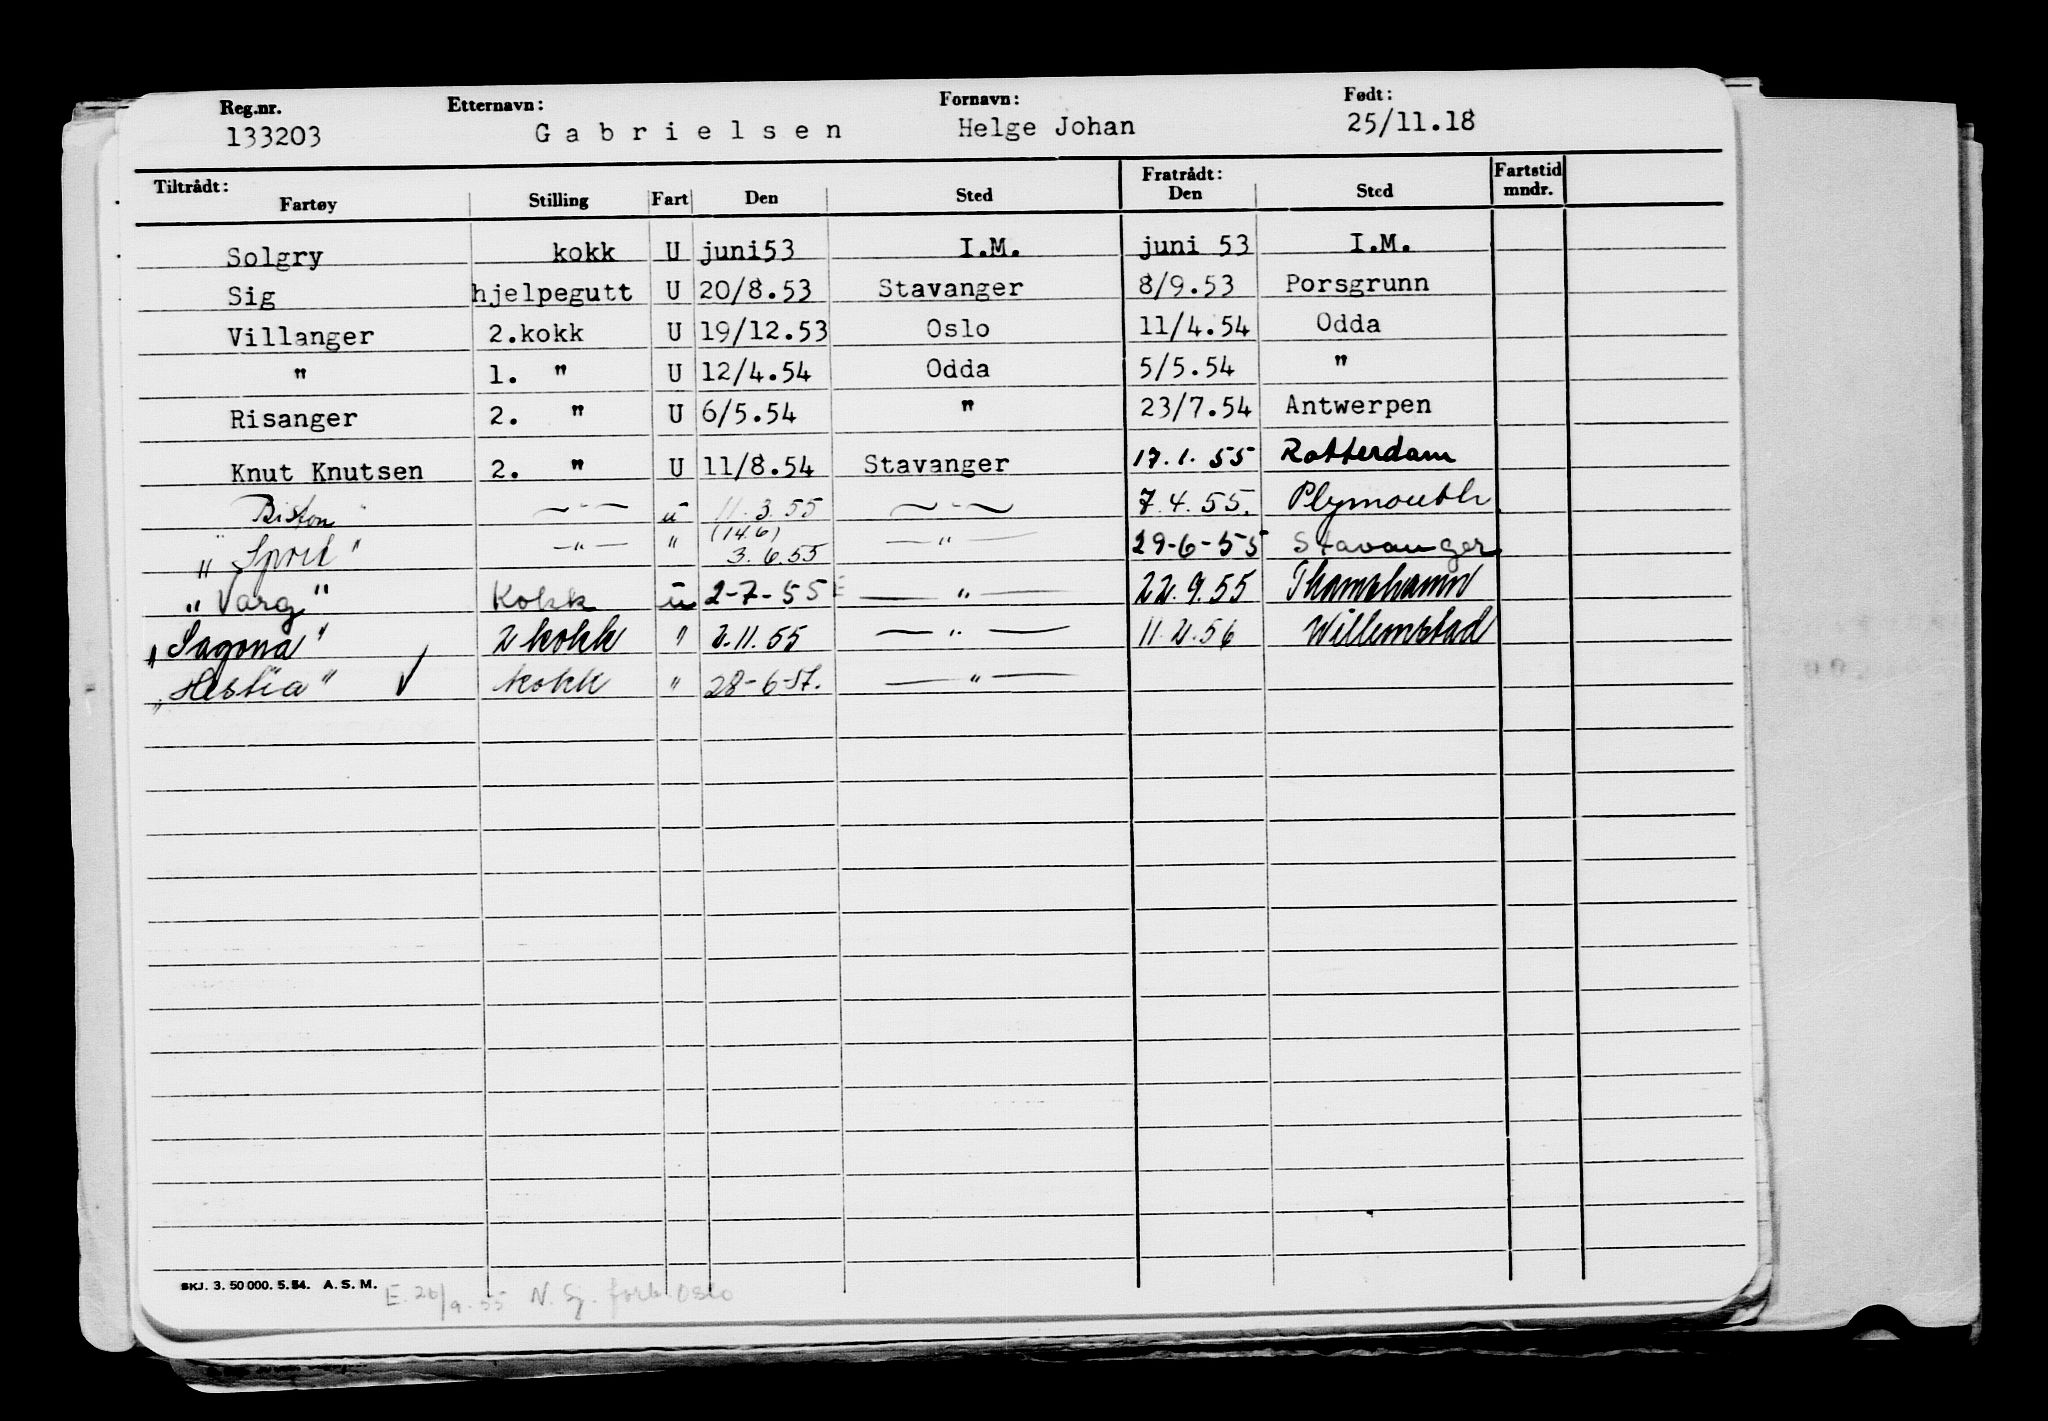 Reg.nr. Etternavn: Fornavn: Født:
133203 Gabrielsen Helge Johan 25/11.18
Tiltrådt: Fratrådt: Fartstid mndr.
Fartøy Stilling Fart Den Sted Den Sted
Solgry kokk U juni53 I.M. juni 53 I.M.
Sig hjelpegutt U 20/8.53 Stavanger 8/9.53 Porsgrunn
Villanger 2.kokk U 19/12.53 Oslo 11/4.54 Odda
" 1. " U 12/4.54 Odda 5/5.54 "
Risanger 2. " U 6/5.54 " 23/7.54 Antwerpen
Knut Knutsen 2. " U 11/8.54 Stavanger 17.1.55 Rotterdam
Biston — " — u 11.3.55 — " — 7.4.55. Plymouth
(14.6)
" Spret " — " — " 3.6.55 — " — 29-6-55 Stavanger
" Varg " Kokk u 2-7-55 E — " — 22.9.55 Thamshamn
" Sagona " 2 kokk " 2.11.55 — " — 11.2.56 Willemstad
" Hestia " ✓ kokk " 28-6-57. — " —
SKJ. 3. 50 000. 5.54. A. S. M.
E. 26/9.55 N. Sj. forb Oslo